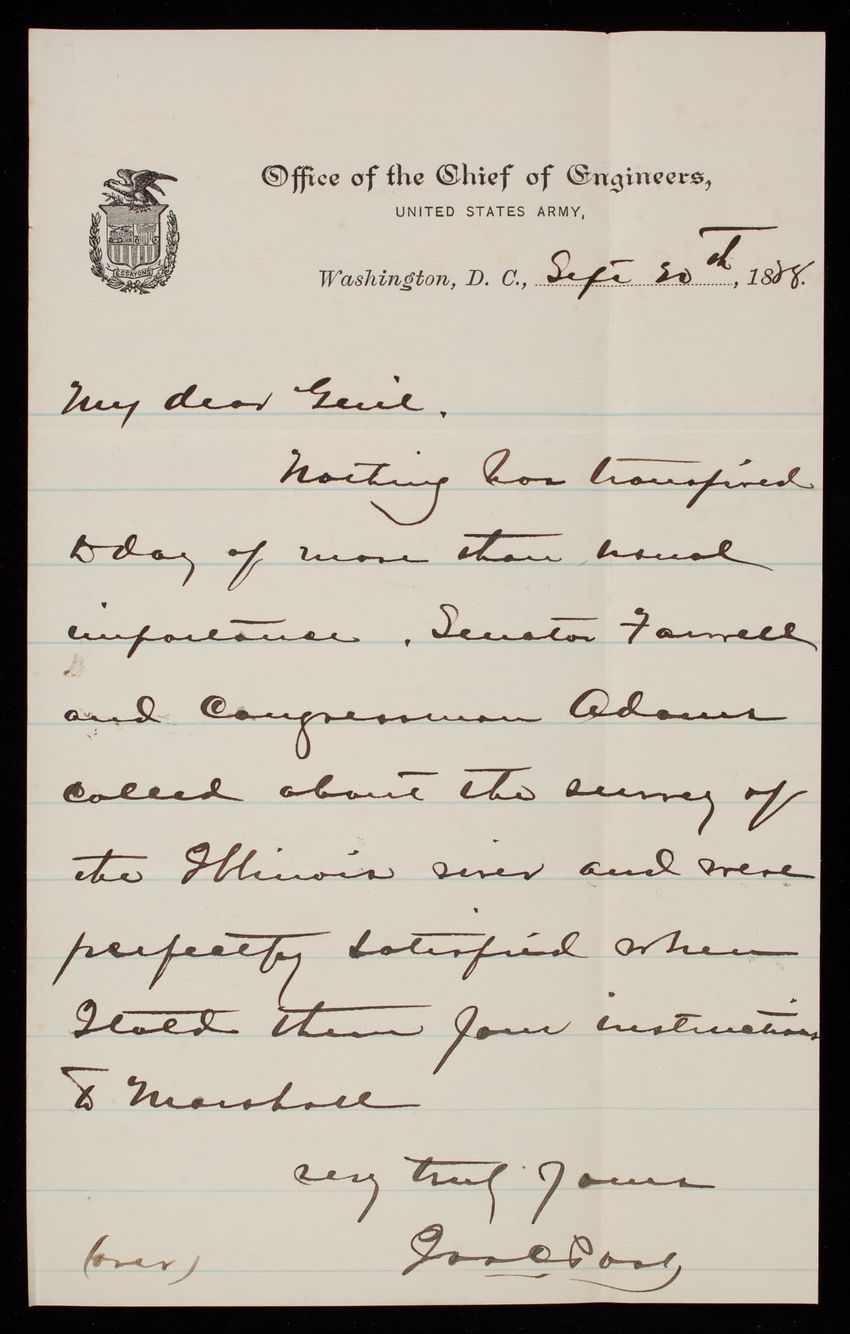 Office of the Chief of Engineers,
UNITED STATES ARMY,
ESSAYONS
Washington, D. C., Sept 20th, 1888.
My dear Genl.
Nothing has transpired
to day of more than usual
importance. Senator Farwell
and Congressman Adams
called about the survey of
the Illinois river and were
perfectly satisfied when
I told them your instructions
to Marshall
very truly yours
Jas C Post
(over)